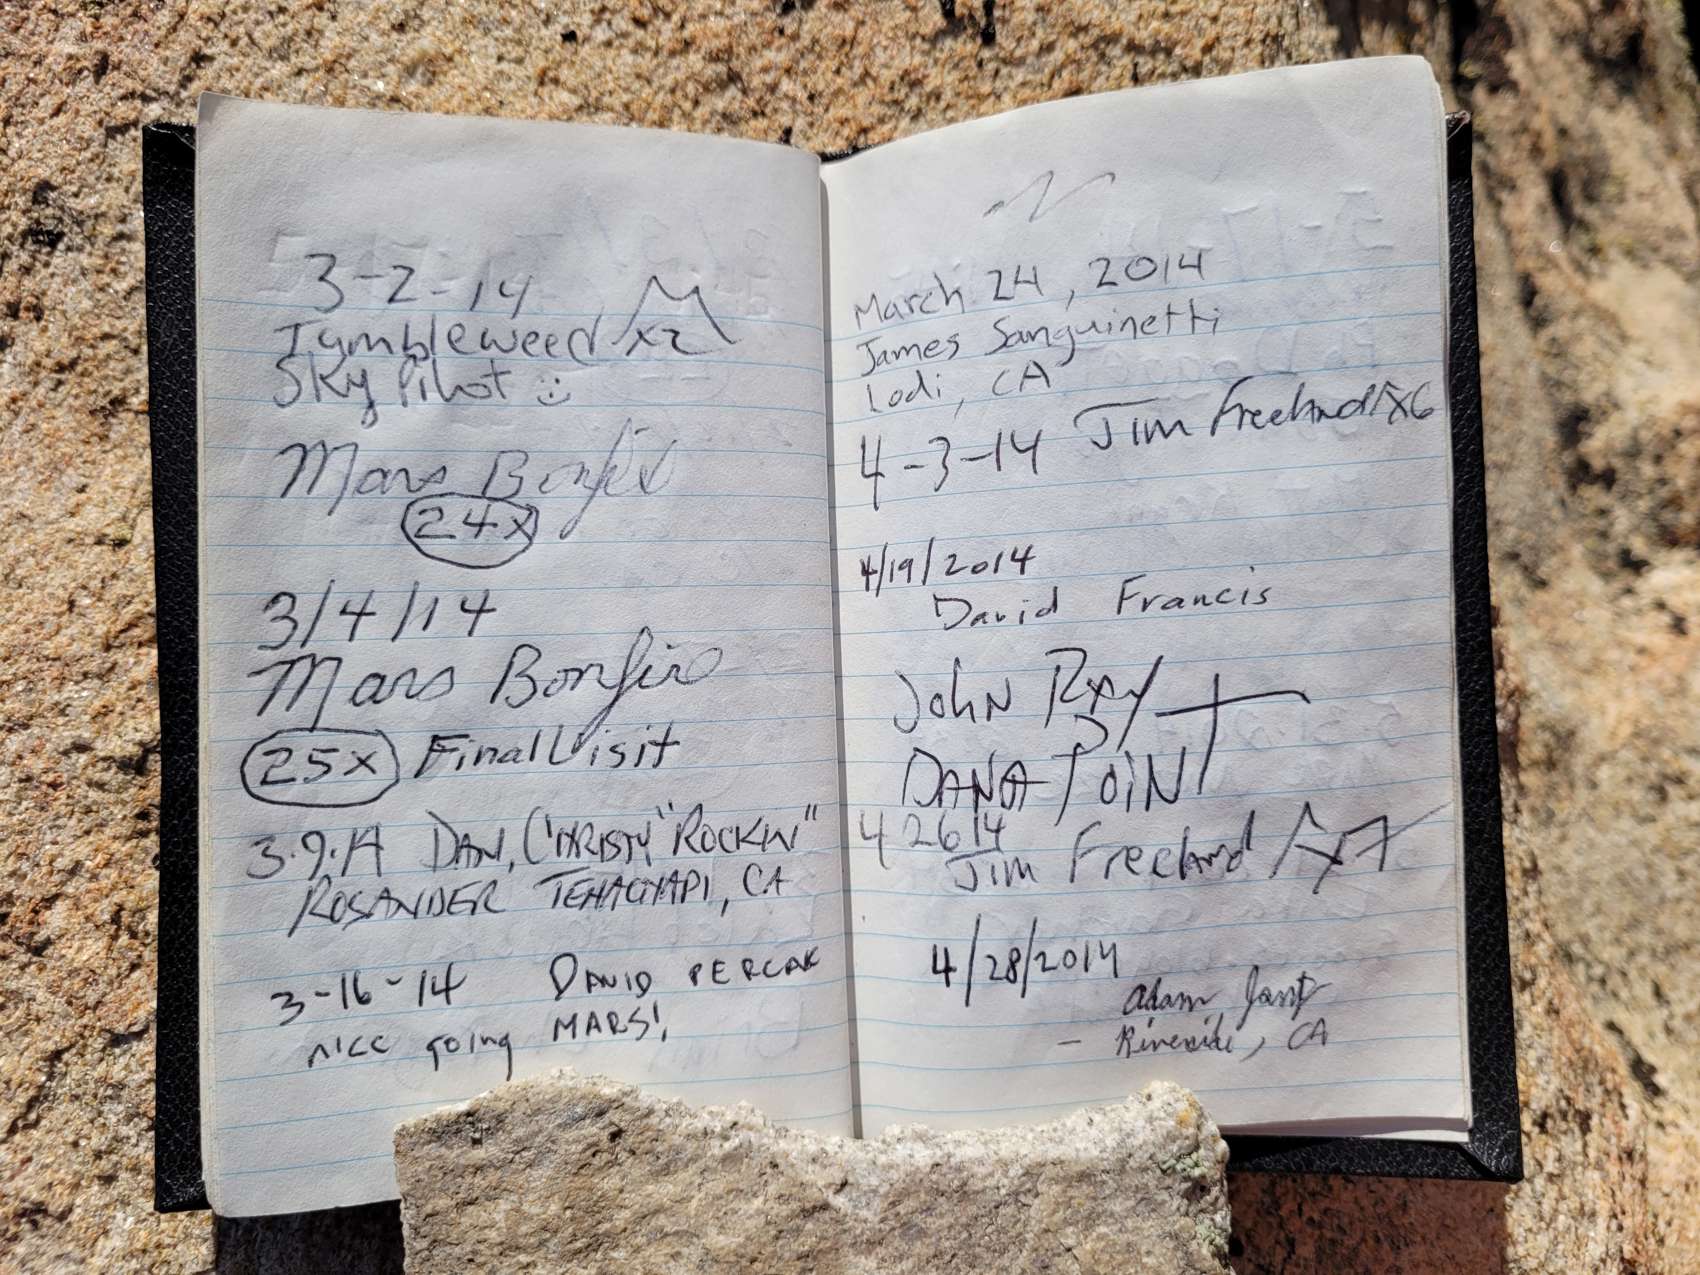 3-2-14
Tumbleweed x2
Sky Pilot
Mars Bonfire
24x
3/4/14
Mars Bonfire
25x Final Visit
3.9.14 DAN, CHRISTY "ROCKIN"
ROSANDER TEHACHAPI, CA
3-16-14 DAVID PERCAK
NICE going MARS!
March 24, 2014
James Sanguinetti
Lodi, CA
4-3-14 Jim Freeland x6
4/19/2014
David Francis
JOHN RAY
DANA POINT
4 26 14
Jim Freeland x7
4/28/2014
Adam
- Riverside, CA